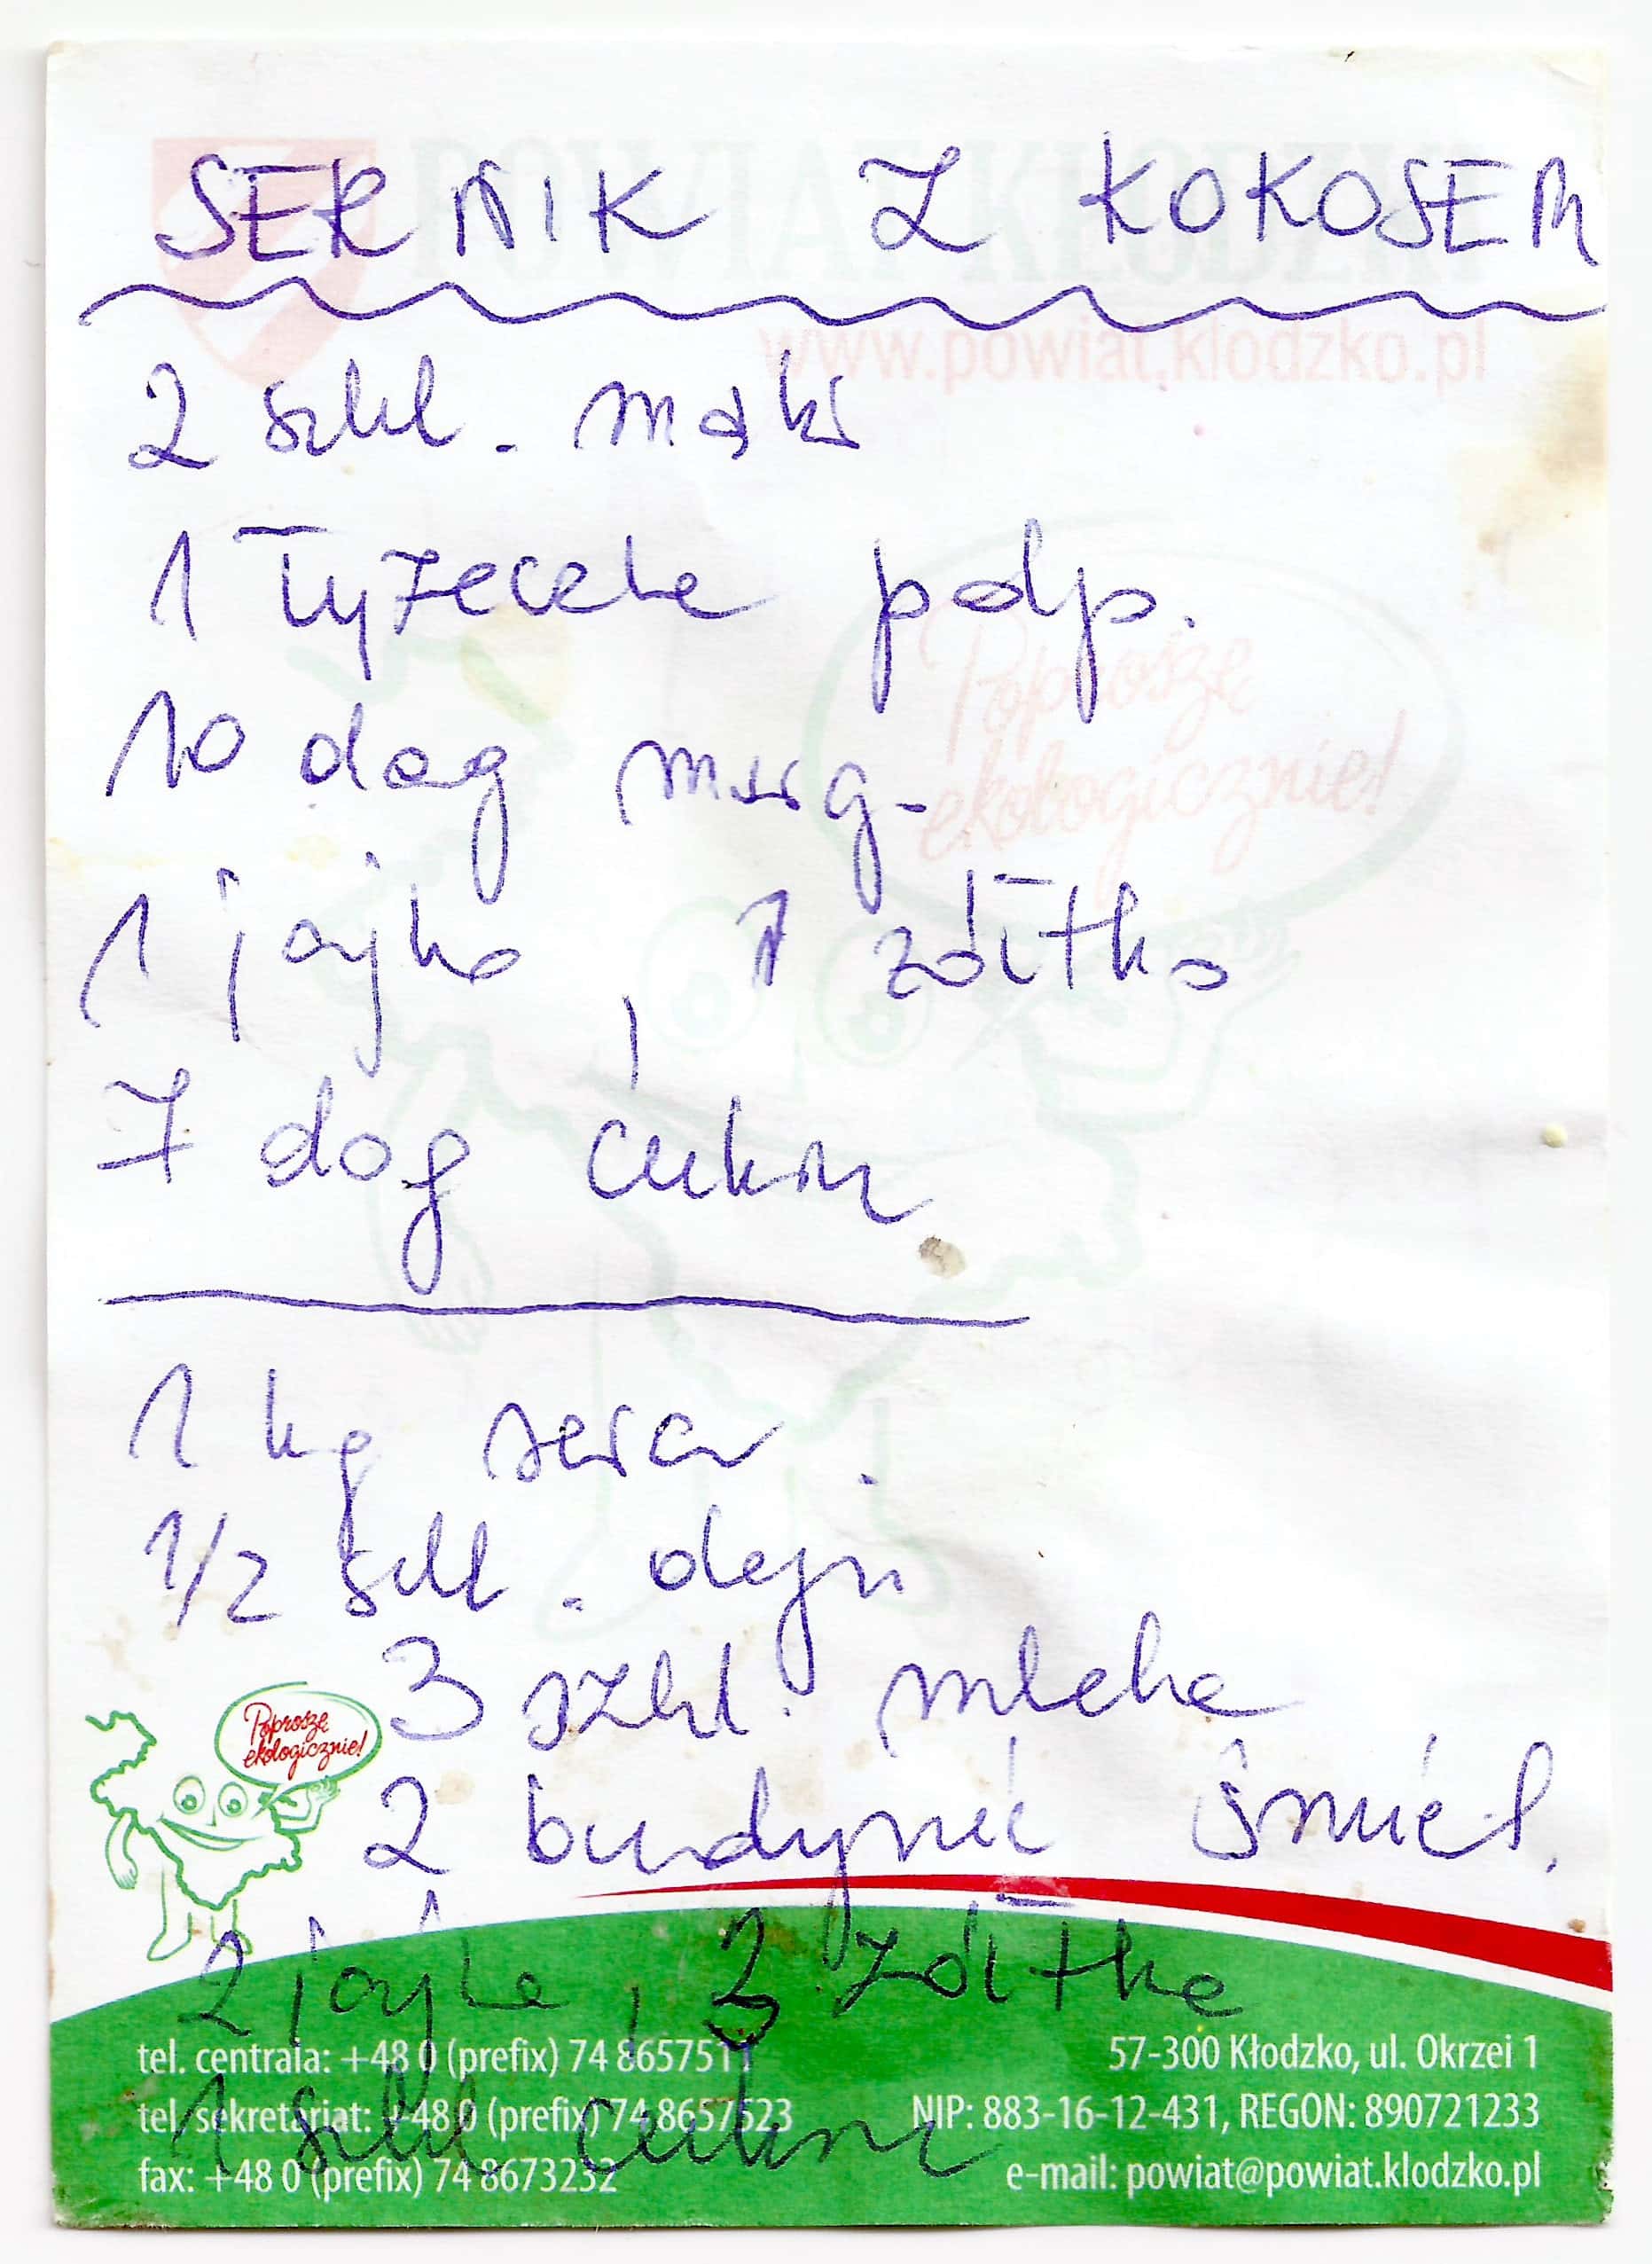 SERNIK Z KOKOSEM
www.powiat.klodzko.pl
2 szkl. mąki
1 łyżeczka podp.
10 dag marg.
1 jajko, 1 żółtko
7 dag cukru
1 kg sera.
1/2 szkl. oleju
3 szkl. mleka
2 budynie śmiet.
2 jajka, 2 żółtka
1 szkl. cukru
Poproszę
ekologicznie!
tel. centrala: +48 0 (prefix) 74 8657511
tel. sekretariat: +48 0 (prefix) 74 8657523
fax: +48 0 (prefix) 74 8673232
57-300 Kłodzko, ul. Okrzei 1
NIP: 883-16-12-431, REGON: 890721233
e-mail: powiat@powiat.klodzko.pl